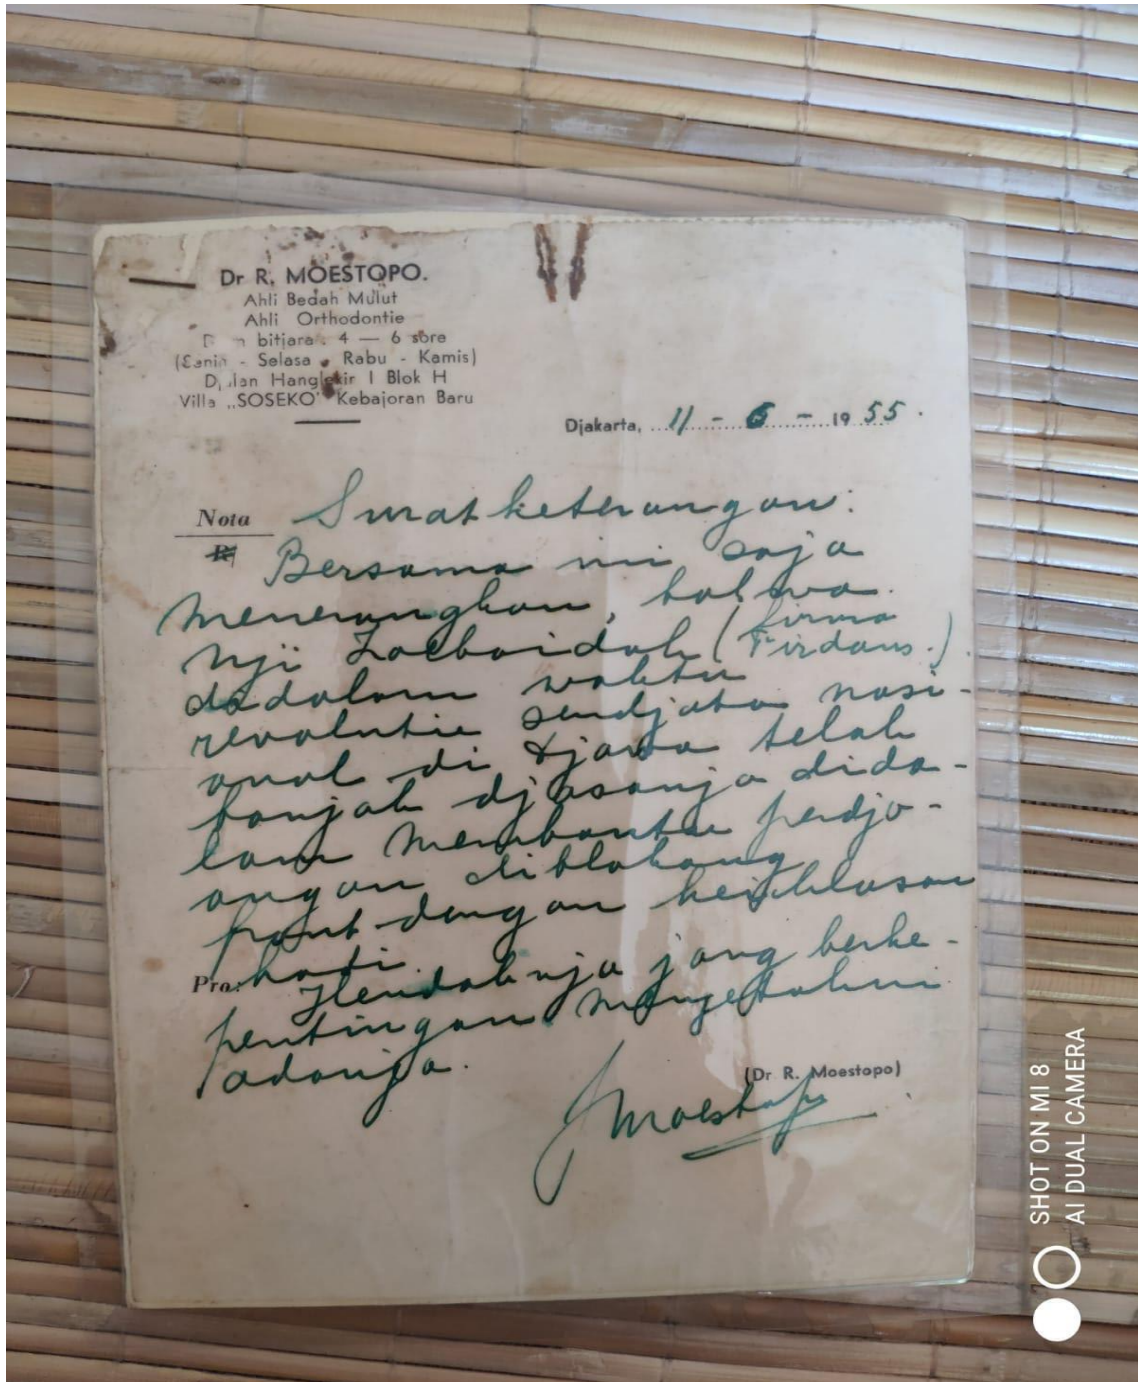 Dr R. MOESTOPO.
Ahli Bedah Mulut
Ahli Orthodontie
bitjara : 4 — 6 sore
(Senin - Selasa - Rabu - Kamis)
Djalan Hanglekir I Blok H
Villa „SOSEKO" Kebajoran Baru
Djakarta, 11 - 6 - 1955.
Nota Surat keterangan:
R/ Bersama ini saja
menerangkan, bahwa
Nji Zoebaidah (firma Firdaus.)
didalam waktu
revolutie sendjata nasi-
onal di Djawa telah
banjak djasanja dida-
lam membantu perdjo-
angan diblakang
front dengan keichlasan
Pro: hati.
Hendaknja jang berke-
pentingan mengetahui
adanja.
(Dr R. Moestopo)
Moestopo
SHOT ON MI 8
AI DUAL CAMERA